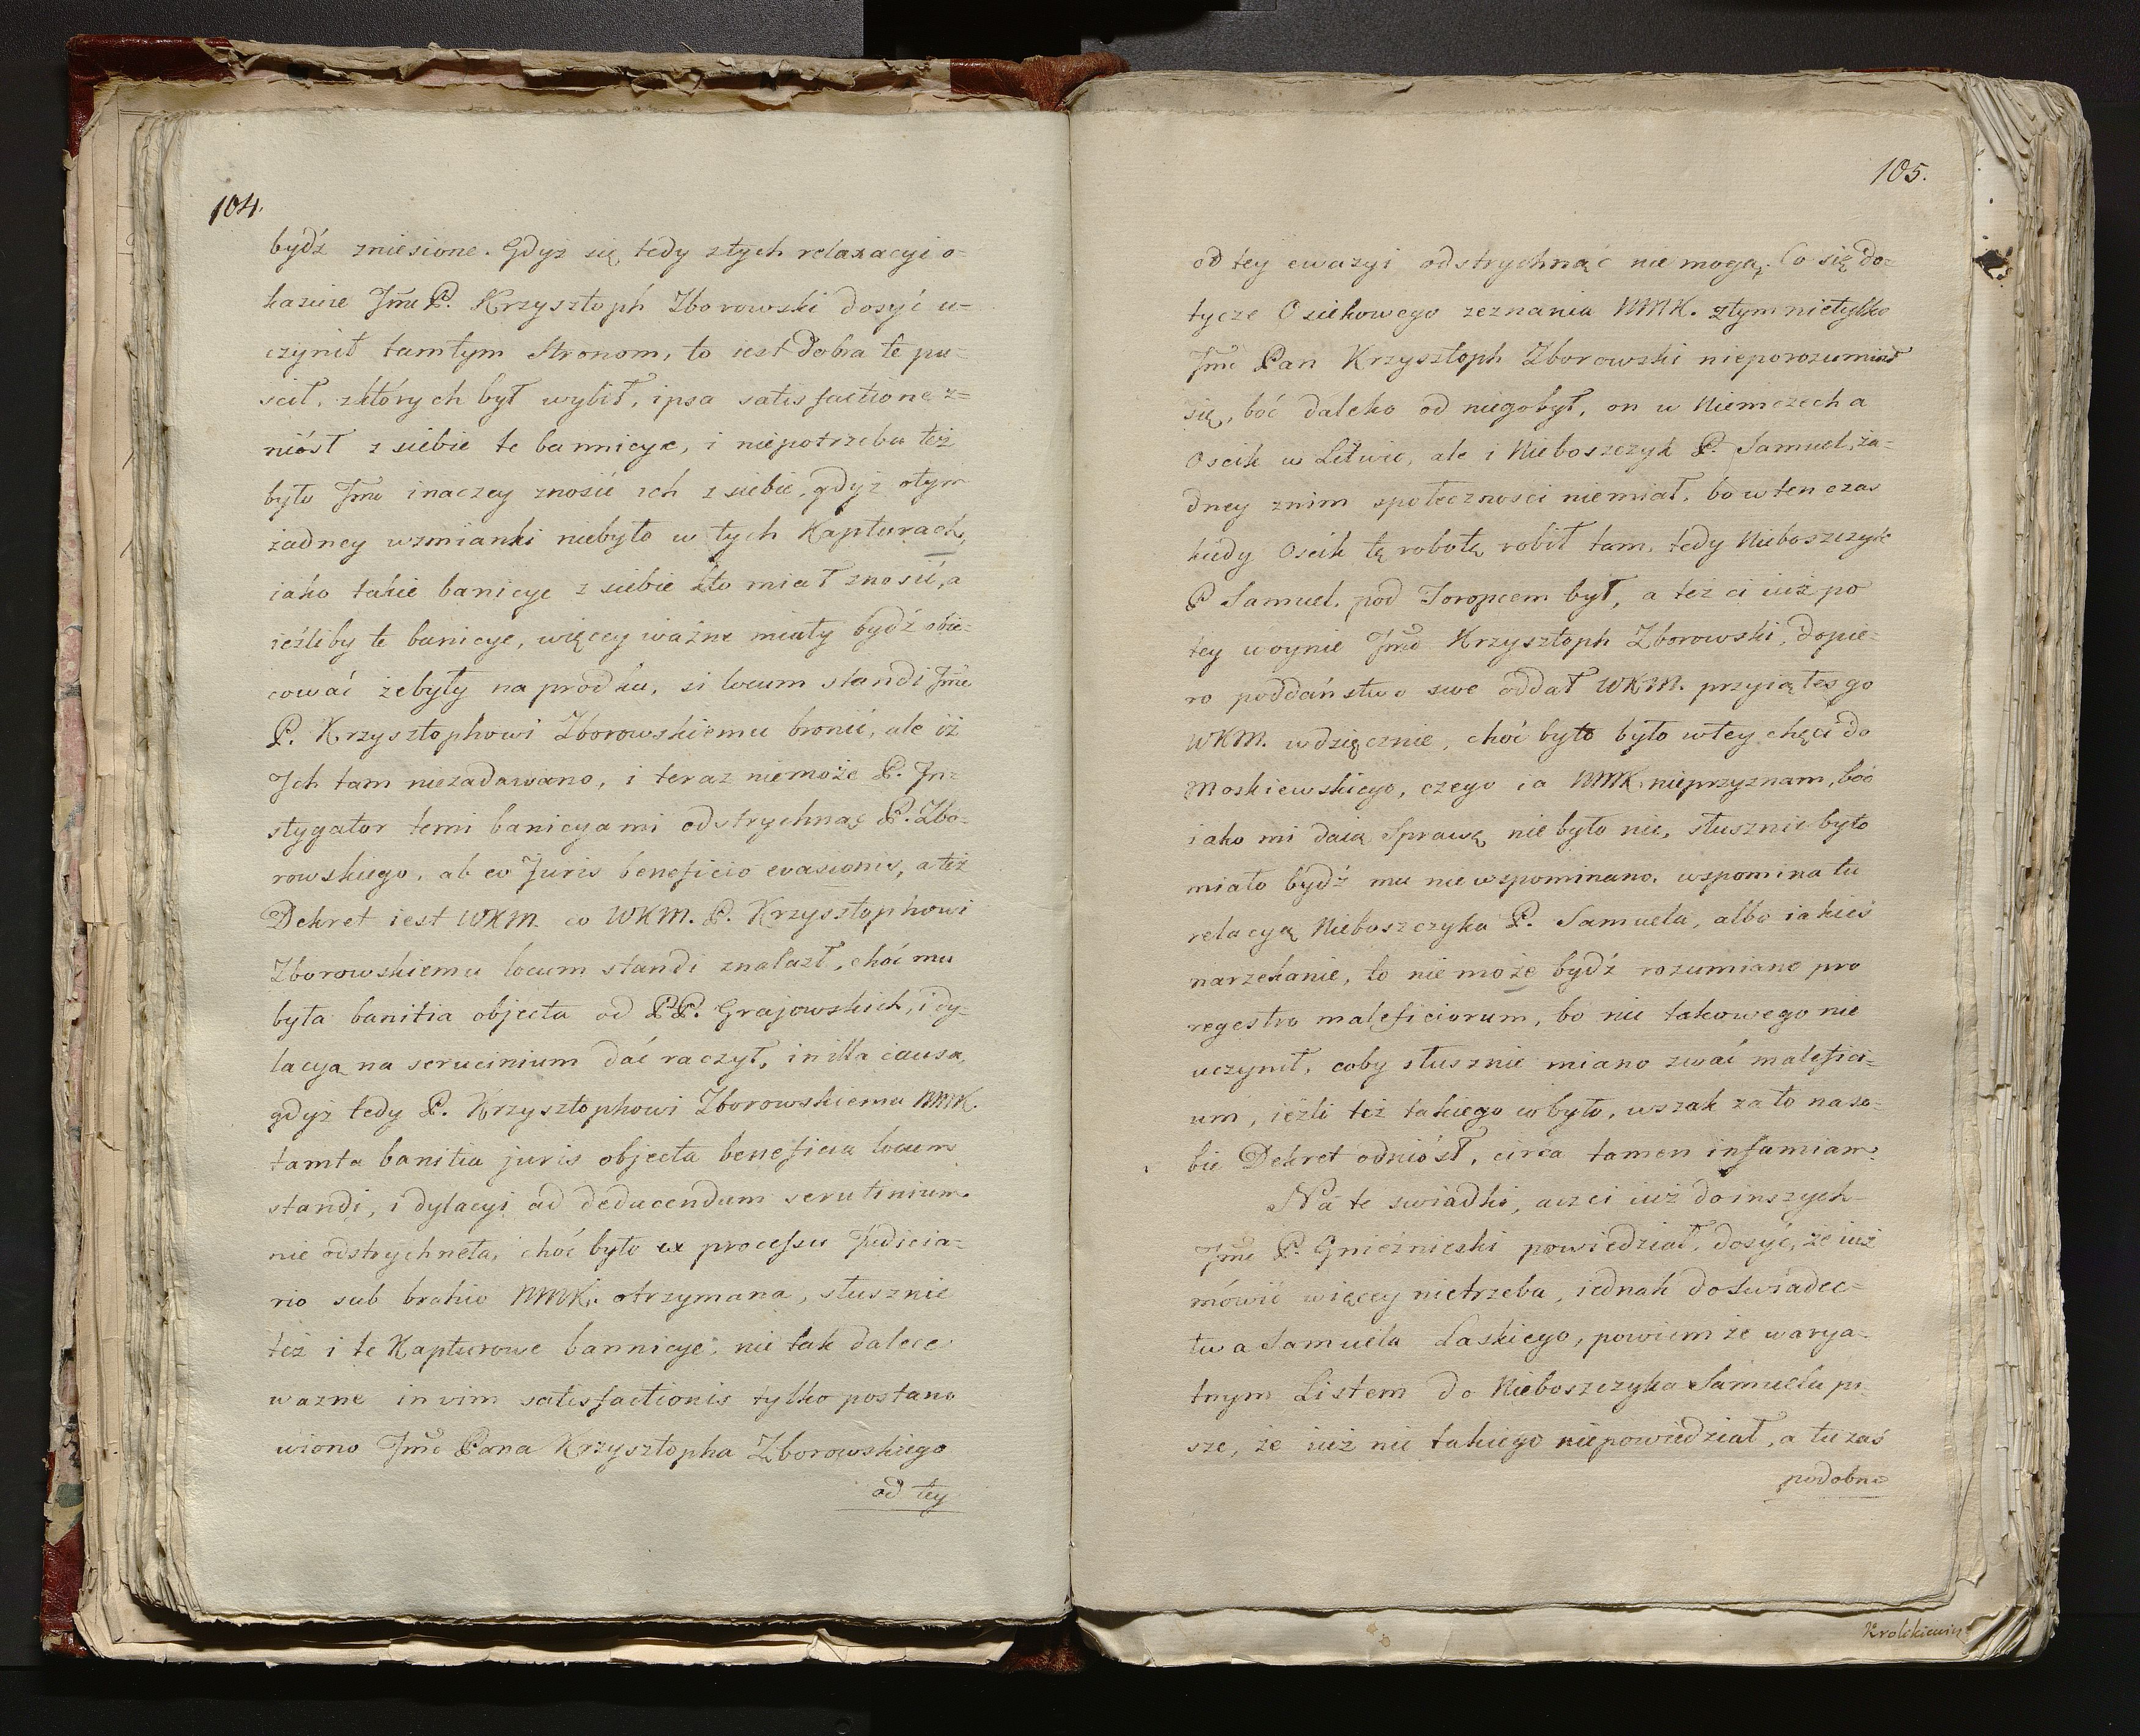 104.
bydź zniesione. Gdyż się tedy ztych relaxacyi o-
kazuie Jmć P. Krzysztoph Zborowski dosyć u-
czynił tamtym Stronom, to iest Dobra te pu-
scił, zktórych był wybił, ipsa satisfactione z-
niósł z siebie te bannicye, i niepotrzeba też
było Jmć inaczey znosić ich z siebie, gdyż otym
żadney wzmianki niebyło w tych Kapturach,
iako takie banicye z siebie kto miał znosić, a
ieźliby te banicye, więcey ważne miały bydź obie-
cować żebyły na prodku, si locum standi Jmć
P. Krzysztophowi Zborowskiemu bronić, ale iż
Ich tam niezadawano, i teraz niemoże P. In-
stygator temi banicyami odstrychnąć P. Zbo-
rowskiego, ab eo Juris beneficio evasionis, a też
Dekret iest WKM. co WKM. P. Krzysztophowi
Zborowskiemu locum standi znalazł, choć mu
była banitia objecta od PP. Grajowskich, i dy-
lacyą na scrucinium dać raczył, in illa causa,
gdyż tedy P. Krzysztophowi Zborowskiemu NMK.
tamta banitia juris objecta beneficia locum
standi, i dylacyi ad deducendum scrutinium
nie odstrychneła, choć było ex processu Judicia-
rio sub brahio NMK. otrzymana, słusznie
też i te Kapturowe bannicye, nie tak dalece
wazne in vim satisfactionis tylko postano
wiono Jmć Pana Krzysztopha Zborowskiego
od tey
105.
od tey ewazyi odstrychnąć nie mogą. Co się do-
tycze Osikowego zeznania NMK. ztym nietylko
Jmć Pan Krzysztoph Zborowski nieporozumiał
się, boć daleko od niego był, on w Niemczech a
Oscik w Litwie, ale i Nieboszczyk P. Samuel, ża-
dney znim społeczności niemiał, bo w ten czas
kiedy Oscik tę robotę robił tam, tedy Nieboszczyk
P Samuel. pod Toropcem był, a też ci iuż po
tey woynie Jmć Krzysztoph Zborowski, dopie-
ro poddaństwo swe oddał WKM. przyiąłeś go
WKM. wdzięcznie, choć było było wtey chęci do
Moskiewskiego, czego ia NMK. nieprzyznam, boć
iako mi daią Sprawę nie było nic, słusznie było
miało bydź mu nie wspominano. wspomina tu
relacyą Nieboszczyka P. Samuela, albo iakieś
narzekanie, to nie może bydź rozumiane pro
regestro maleficiorum, bo nic takowego nie
uczynił, coby słusznie miano zwać malefici-
um, ieźli też takiego co było, wszak za to na so-
bie Dekret odniósł, circa tamen infamiam.
Na te swiadki, aczci iuż do inszych
Jmć P. Gnieźnieski powiedział, dosyć, że iuż
mówić więcey nietrzeba, iednak do świadec-
twa Samuela Laskiego, powiem że warya-
tnym Listem do Nieboszczyka Samuela pi
sze, że iuż nic takiego niepowiedział, a tu zaś
podobno
Krolikiewicz